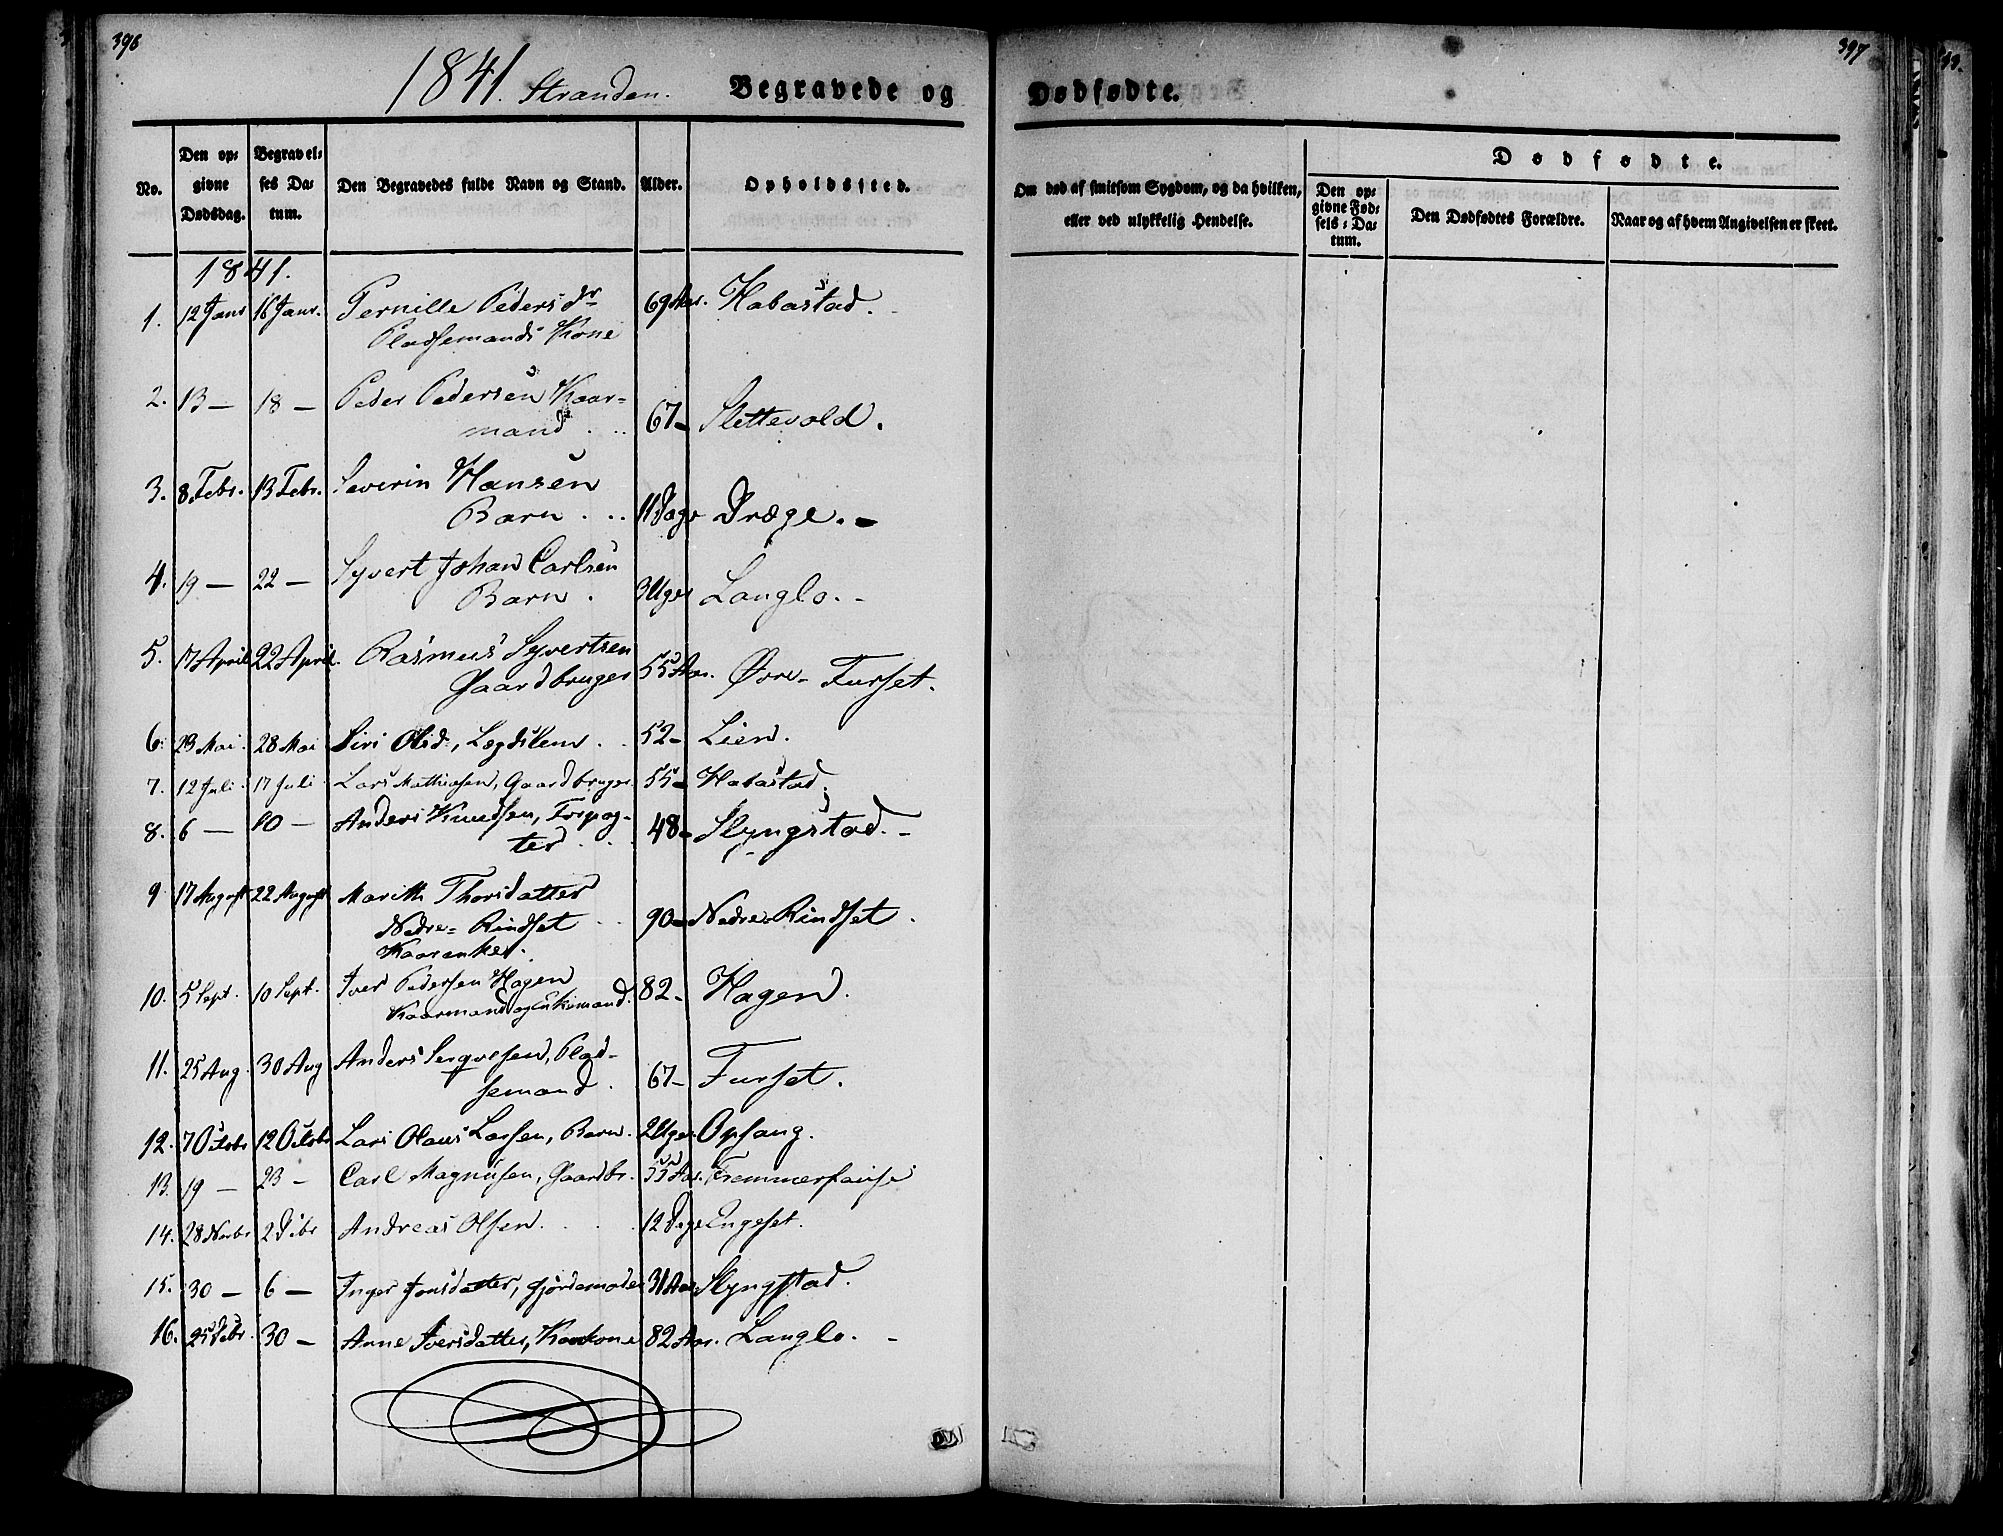 396
1841. Stranden. Begravede og
No. Den opgivne Dødsdag. Begravelses Datum. Den Begravedes fulde Navn og Stand. Alder. Opholdssted.
1841.
1. 12 Janr 16 Janr. Pernille Pedersdr 69 Aar. Habostad.
Pladsemands Kone
2. 13 — 18 — Peder Pedersen Kaar=
mand . . . 67 - Slettevold.
3. 8 Febr. 13 Febr. Severin Hansen
Barn . . . 11 Dage Dræge. -
4. 19 — 22 — Syvert Johan Carlsen
Barn . 3 Uger Langlo. -
5. 17 April 22 April. Rasmus Syvertsen
Gaardbruger 55 Aar. Øvre- Furset.
6. 23 Mai. 28 Mai Siri Olsd., Lægdslem . . 52 - Lien.
7. 12 Juli. 17 Juli. Lars Mathiesen, Gaardbruger 55 - Habostad.
8. 6 — 10 — Anders Knudsen, Forpag-
ter . . . 48 - Slyngstad. -
9 17 August 22 August Marith Thorsdatter
Nedre= Rindset . . 90 - Nedre Rindset .
Kaarenke.
10. 5 Sept. 10 Sept. Iver Pedersen Hagen
Kaarmand og Enkemand. 82 - Hagen.
11. 25 Aug. 30 Aug Anders Seqvesen, Plad-
semand . 67 - Furset.
12. 7 Octobr 12 Octobr Lars Olaus Larsen, Barn. 2 Uger Opsang.
13. 19 — 23 - Carl Magnusen, Gaardbr. 55 Aar.
14. 28 Novbr 2 Dcbr Andreas Olsen. . . . 12 Dage Engeset.
15. 30 — 6 — Inger Jonsdatter, Gjordemoder 31 Aar Slyngstad.
16. 25 Decbr. 30 — Anne Iversdatter, Kaarkone 82 Aar. Langlo. -
397
Dødfødte.
Om død af smitsom Sygdom, og da hvilken, eller ved ulykkelig Hendelse.
Dødfødte.
Den opgivne Fødsels-Datum. Den Dødfødtes Forældre. Naar og af hvem Angivelsen er skeet.